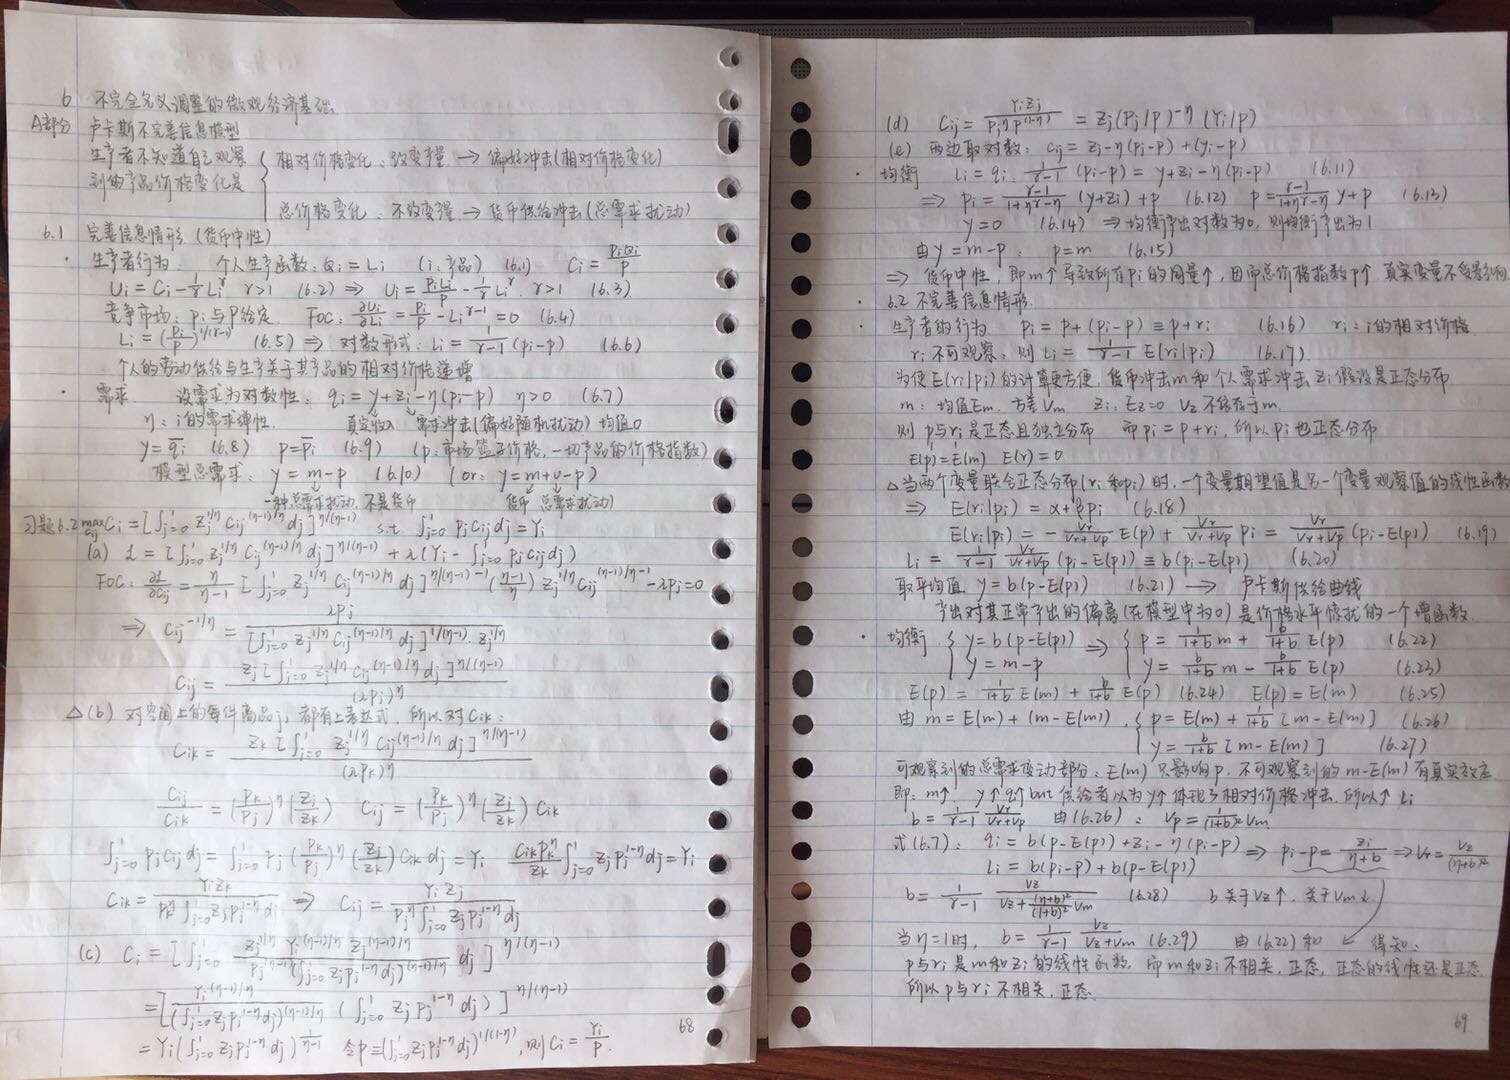 6 不完全名义调整的微观经济基础.
A部分 卢卡斯不完善信息模型
生产者不知道自己观察到的产品价格变化是
相对价格变化、改变产量 → 偏好冲击(相对价格变化)
总价格变化、不改变产量 → 货币供给冲击(总需求扰动)
6.1 完善信息情形 (货币中性)
· 生产者行为: 个人生产函数: Qi = Li (i:产品) (6.1) Ci = PiQi/P
Ui = Ci - 1/γ Li^γ γ>1 (6.2) ⇒ Ui = PiLi/P - 1/γ Li^γ. γ>1 (6.3)
竞争市场: Pi与P给定. FOC: ∂Ui/∂Li = Pi/P - Li^(γ-1) = 0 (6.4)
Li = (Pi/P)^(1/(γ-1)) (6.5) ⇒ 对数形式: li = 1/(γ-1) (pi-p) (6.6)
个人的劳动供给与生产关于其产品的相对价格递增
· 需求 设需求为对数线性: qi = y + zi - η(pi-p) η>0 (6.7)
η: i的需求弹性. 真实收入 需求冲击(偏好随机扰动) 均值0
y = q̄i (6.8) p = p̄i (6.9) (p:市场篮子价格, 一切产品的价格指数)
模型总需求: y = m-p (6.10) (or: y = m+υ-p)
一种总需求扰动, 不是货币 货币 总需求扰动)
习题6.2 max Cij Ci = [∫j=0^1 Zj^(1/η) Cij^((η-1)/η) dj]^(η/(η-1)) s.t. ∫j=0^1 Pj Cij dj = Yi
(a) L = [∫j=0^1 Zj^(1/η) Cij^((η-1)/η) dj]^(η/(η-1)) + λ(Yi - ∫j=0^1 Pj Cij dj)
FOC: ∂L/∂Cij = η/(η-1) [∫j=0^1 Zj^(1/η) Cij^((η-1)/η) dj]^(η/(η-1)-1) ((η-1)/η) Zj^(1/η) Cij^((η-1)/η-1) - λPj = 0
⇒ Cij^(-1/η) = λPj / ([∫j=0^1 Zj^(1/η) Cij^((η-1)/η) dj]^(1/(η-1)) · Zj^(1/η))
Cij = Zj [∫j=0^1 Zj^(1/η) Cij^((η-1)/η) dj]^(η/(η-1)) / (λPj)^η
△(b) 对空间上的每件商品j, 都有上表达式, 所以对Cik:
Cik = Zk [∫j=0^1 Zj^(1/η) Cij^((η-1)/η) dj]^(η/(η-1)) / (λPk)^η
Cij/Cik = (Pk/Pj)^η (Zj/Zk) Cij = (Pk/Pj)^η (Zj/Zk) Cik
∫j=0^1 Pj Cij dj = ∫j=0^1 Pj (Pk/Pj)^η (Zj/Zk) Cik dj = Yi CikPk^η/Zk ∫j=0^1 Zj Pj^(1-η) dj = Yi
Cik = YiZk / (Pk^η ∫j=0^1 Zj Pj^(1-η) dj) ⇒ Cij = YiZj / (Pj^η ∫j=0^1 Zj Pj^(1-η) dj)
(c) Ci = [∫j=0^1 Zj^(1/η) Yi^((η-1)/η) Zj^((η-1)/η) / (Pj^(η-1) (∫j=0^1 Zj Pj^(1-η) dj)^((η-1)/η)) dj]^(η/(η-1))
= [Yi^((η-1)/η) / (∫j=0^1 Zj Pj^(1-η) dj)^((η-1)/η) (∫j=0^1 Zj Pj^(1-η) dj)]^(η/(η-1))
= Yi (∫j=0^1 Zj Pj^(1-η) dj)^(1/(η-1)) 令P ≡ (∫j=0^1 Zj Pj^(1-η) dj)^(1/(1-η)), 则Ci = Yi/P.
68
(d) Cij = YiZj / (Pj^η P^(1-η)) = Zj (Pj/P)^(-η) (Yi/P)
(e) 两边取对数: cij = zj - η(pj-p) + (yi-p)
· 均衡 li = qi. 1/(γ-1) (pi-p) = y + zi - η(pi-p) (6.11)
⇒ pi = (γ-1)/(1+ηγ-η) (y+zi) + p (6.12) p = (γ-1)/(1+ηγ-η) y + p (6.13)
y = 0 (6.14) ⇒ 均衡产出对数为0, 则均衡产出为1
由y = m-p : p = m (6.15)
⇒ 货币中性. 即m↑导致所有pi的同量↑, 因而总价格指数p↑ 真实变量不受影响
· 6.2 不完善信息情形.
生产者的行为. pi = p + (pi-p) ≡ p + ri (6.16) ri: i的相对价格
ri不可观察: 则 li = 1/(γ-1) E(ri|pi) (6.17)
为使E(ri|pi)的计算更方便, 货币冲击m和个人需求冲击zi假设是正态分布
m: 均值Em, 方差Vm zi: Ez=0 Vz 不依存于m.
则p与ri是正态且独立分布 而pi = p+ri, 所以pi也正态分布
E(p) = E(m) E(r) = 0
△当两个变量联合正态分布(ri和pi)时, 一个变量期望值是另一个变量观察值的线性函数
⇒ E(ri|pi) = α + βpi (6.18)
E(ri|pi) = - Vr/(Vr+Vp) E(p) + Vr/(Vr+Vp) pi = Vr/(Vr+Vp) (pi-E(p)) (6.19)
li = 1/(γ-1) Vr/(Vr+Vp) (pi-E(p)) ≡ b(pi-E(p)) (6.20)
取平均值 y = b(p-E(p)) (6.21) → 卢卡斯供给曲线
产出对其正常产出的偏离(在模型中为0)是价格水平惊扰的一个增函数.
· 均衡 { y = b(p-E(p)) ⇒ { p = 1/(1+b) m + b/(1+b) E(p) (6.22)
y = m-p y = b/(1+b) m - b/(1+b) E(p) (6.23)
E(p) = 1/(1+b) E(m) + b/(1+b) E(p) (6.24) E(p) = E(m) (6.25)
由 m = E(m) + (m-E(m)), { p = E(m) + 1/(1+b) [m-E(m)] (6.26)
y = b/(1+b) [m-E(m)] (6.27)
可观察到的总需求变动部分: E(m) 只影响p, 不可观察到的m-E(m)有真实效应
即: m↑, y↑ q↑ but 供给者以为y↑体现了相对价格冲击, 所以↑ Li
b = 1/(γ-1) Vr/(Vr+Vp) 由(6.26): Vp = 1/(1+b)² Vm
式(6.7): qi = b(p-E(p)) + zi - η(pi-p) ⇒ pi-p = zi/(η+b) ⇒ Vr = Vz/(η+b)²
li = b(pi-p) + b(p-E(p))
b = 1/(γ-1) Vz/(Vz + (η+b)²/(1+b)² Vm) (6.28) b关于Vz↑, 关于Vm↓
当η=1时, b = 1/(γ-1) Vz/(Vz+Vm) (6.29) 由(6.22)和 得知:
p与ri是m和zi的线性函数, 而m和zi不相关, 正态, 正态的线性还是正态
所以p与ri不相关, 正态.
69